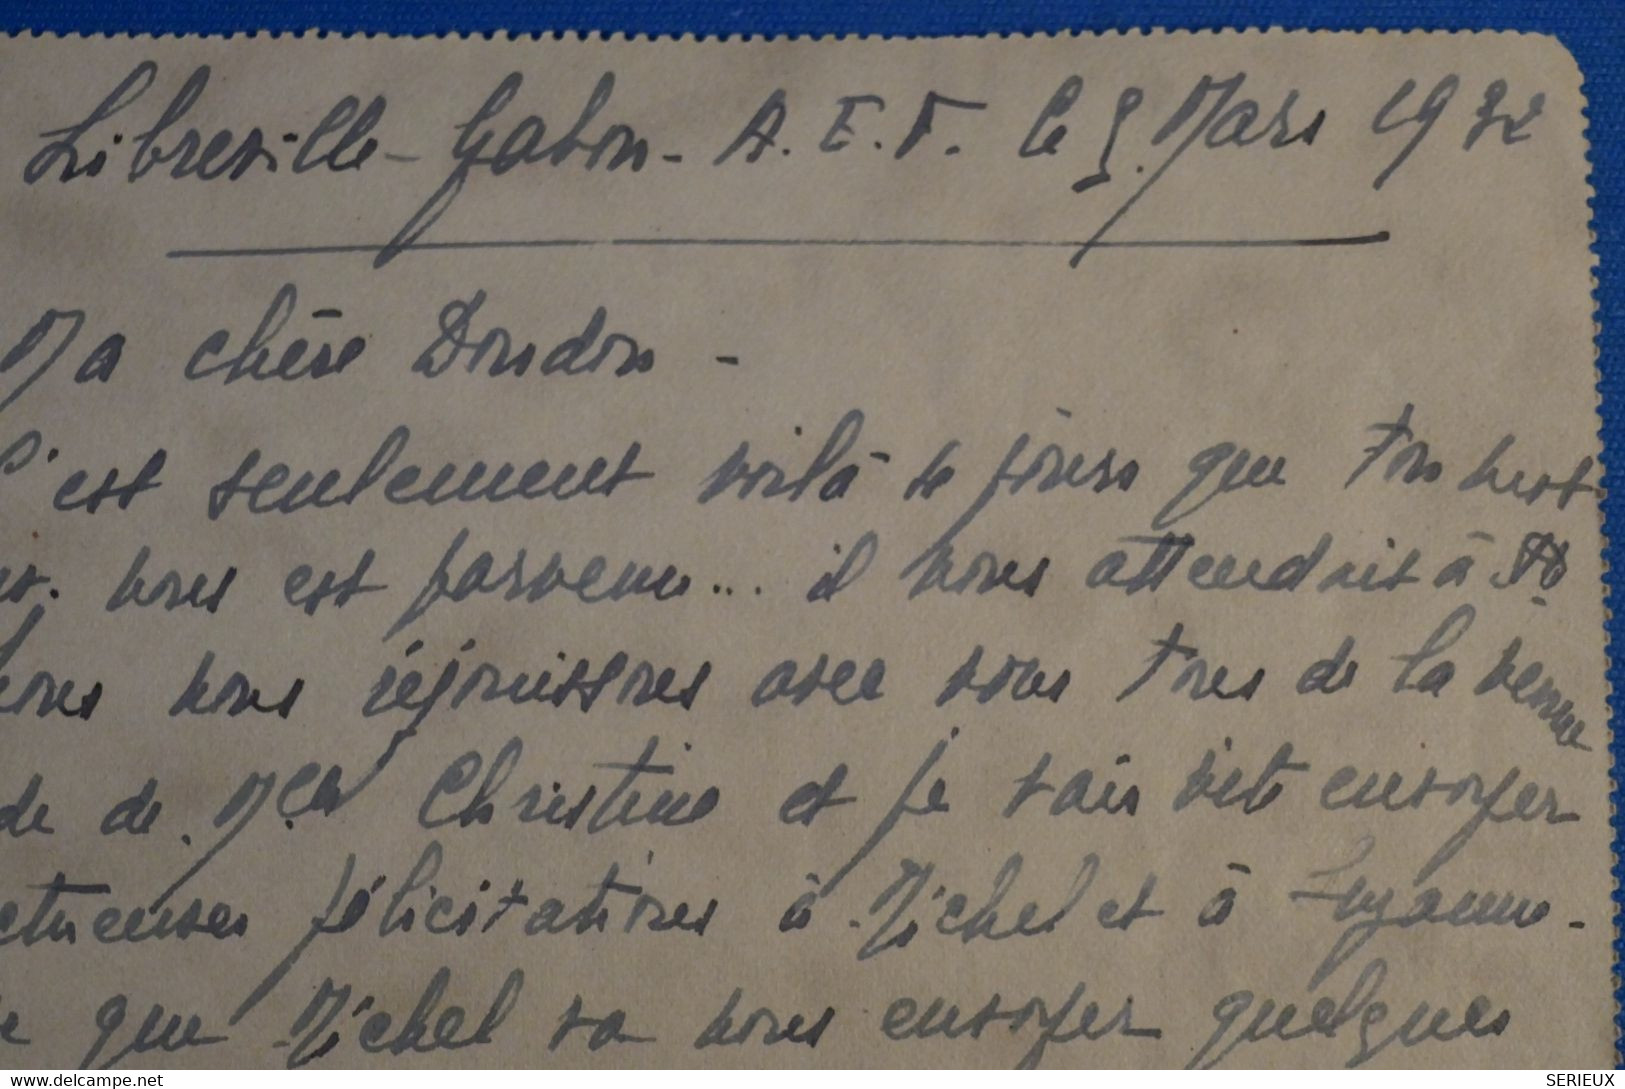 Libreville - Gabon - A.E.F. le 9 Mars 1932
Ma chère Doudou -
C'est seulement voilà jours que ton
nous est parvenu... il nous attendait à
nous nous réjouissons avec vous tous de la venue
de de Melle Christine et je vais vite envoyer
félicitations à Michel et à Suzanne -
que Michel va nous envoyer quelques
SERIEUX